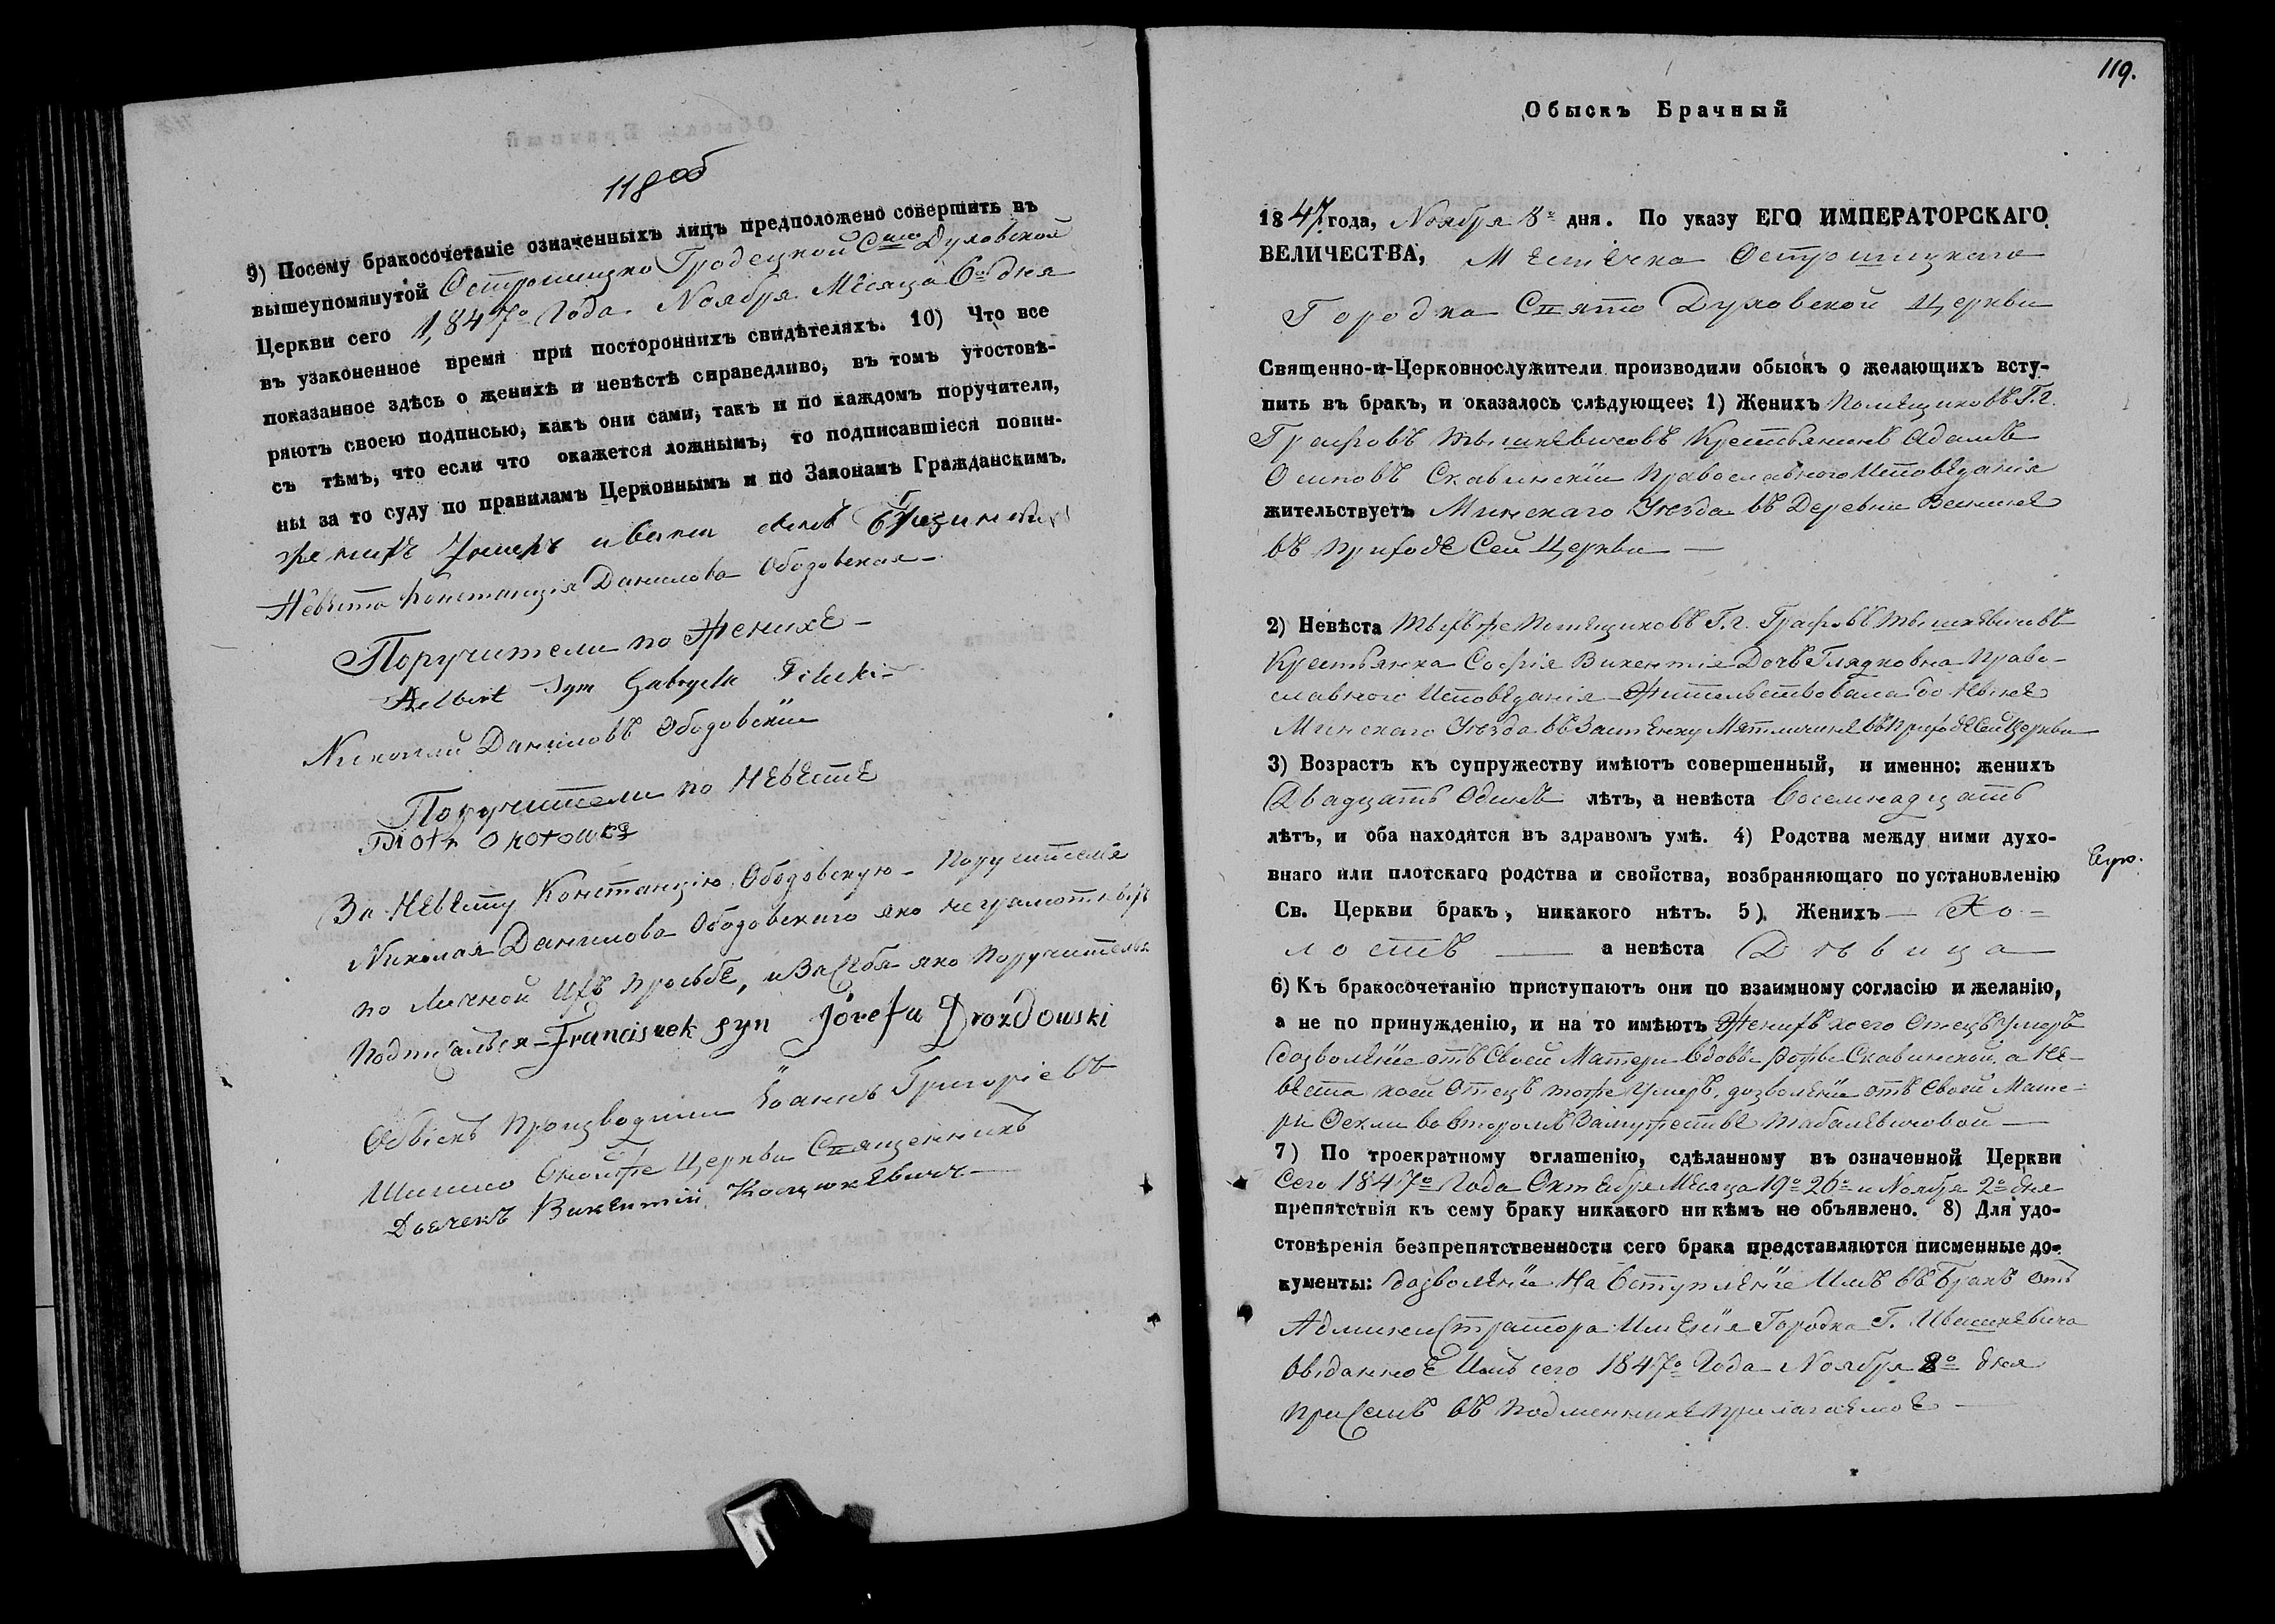 118 об
9) Посему бракосочетаніе означенныхъ лицъ предположено совершить въ
вышеупомянутой Острошицко Градецкой Духовской
Церкви сего 1,847º Года Ноября Месяца 6º дня
въ узаконенное время при постороннихъ свидѣтеляхъ. 10) Что все
показанное здѣсь о женихѣ и невѣстѣ справедливо, въ томъ утостовѣ-
ряютъ своею подписью, какъ они сами, такъ и по каждомъ поручители,
съ тѣмъ, что если что окажется ложнымъ, то подписавшіеся повин-
ны за то суду по правиламъ Церковнымъ и по Законамъ Гражданскимъ.
женихъ
Невѣста Констанція Данилова Ободовская
Поручители по Женихѣ
Adelbert Syn Gabryela
Николай Даниловъ Ободовскій
Поручители по Невѣстѣ
Piotr
За Невѣсту Констанцію Ободовскую Поручителя
Николая Данилова Ободовскаго яко неграмотныхъ
по Личной Ихъ просьбѣ, и За Себя яко Поручитель
Подписался Franciszek syn Józefa Drozdowski
Обыскъ производили Іоаннъ Григоріевъ
Шимно Оной же Церкви Священникъ
Дьячекъ Викентій Коцюкевичъ
119.
Обыскъ Брачный
1847 года, Ноября 8º дня. По указу ЕГО ИМПЕРАТОРСКАГО
ВЕЛИЧЕСТВА, Местечка Острошицкаго
Городка Свято Духовской Церкви
Священно-и-Церковнослужители производили обыскъ о желающихъ всту-
пить въ бракъ, и оказалось слѣдующее: 1) Женихъ Помещиковъ Г.г.
Графовъ Тышкевичовъ Крестьянинъ Адамъ
Осиповъ Скавинскій Православного Исповѣданія
жительствуетъ Минскаго Уезда въ Деревни
въ приходѣ Сей Церкви
2) Невѣста Тыхъ же Помещиковъ Г.г. Графовъ Тышкевичовъ
Крестьянка Софія Викентія Дочь Глядковна Право-
славного Исповѣданія Жительствовала до Ныне
Минскаго Уезда въ Застенку въ приходѣ Сей Церкви
3) Возрастъ къ супружеству имѣютъ совершенный, и именно: женихъ
Двадцать Одинъ лѣтъ, а невѣста восемнадцать
лѣтъ, и оба находятся въ здравомъ умѣ. 4) Родства между ними духо-
внаго или плотскаго родства и свойства, возбраняющаго по установленію
Св. Церкви бракъ, никакого нѣтъ. 5) Женихъ Хо-
лостъ а невѣста Дѣвица
6) Къ бракосочетанію приступаютъ они по взаимному согласію и желанію,
а не по принужденію, и на то имѣютъ Женихъ коего Отецъ Умеръ
дозволеніе отъ Своей Матери Вдовы Скавинской, а Не-
веста коей Отецъ тоже Умеръ, дозволеніе отъ Своей Мате-
ри Феклы во второмъ Замужествѣ Табалевичовой
7) По троекратному оглашенію, сдѣланному въ означенной Церкви
Сего 1847º Года Октября Месяца 19º 26º и Ноября 2º дня
препятствія къ сему браку никакого никѣмъ не объявлено. 8) Для удо-
стовѣренія безпрепятственности сего брака представляются писменные до-
кументы: дозволеніе На вступленіе Имъ въ Бракъ отъ
Администратора Именія Городка Г. Ивашкевича
выданное Имъ сего 1847º Года Ноября 8º дня
при Семъ въ подлинникѣ прилагаемое